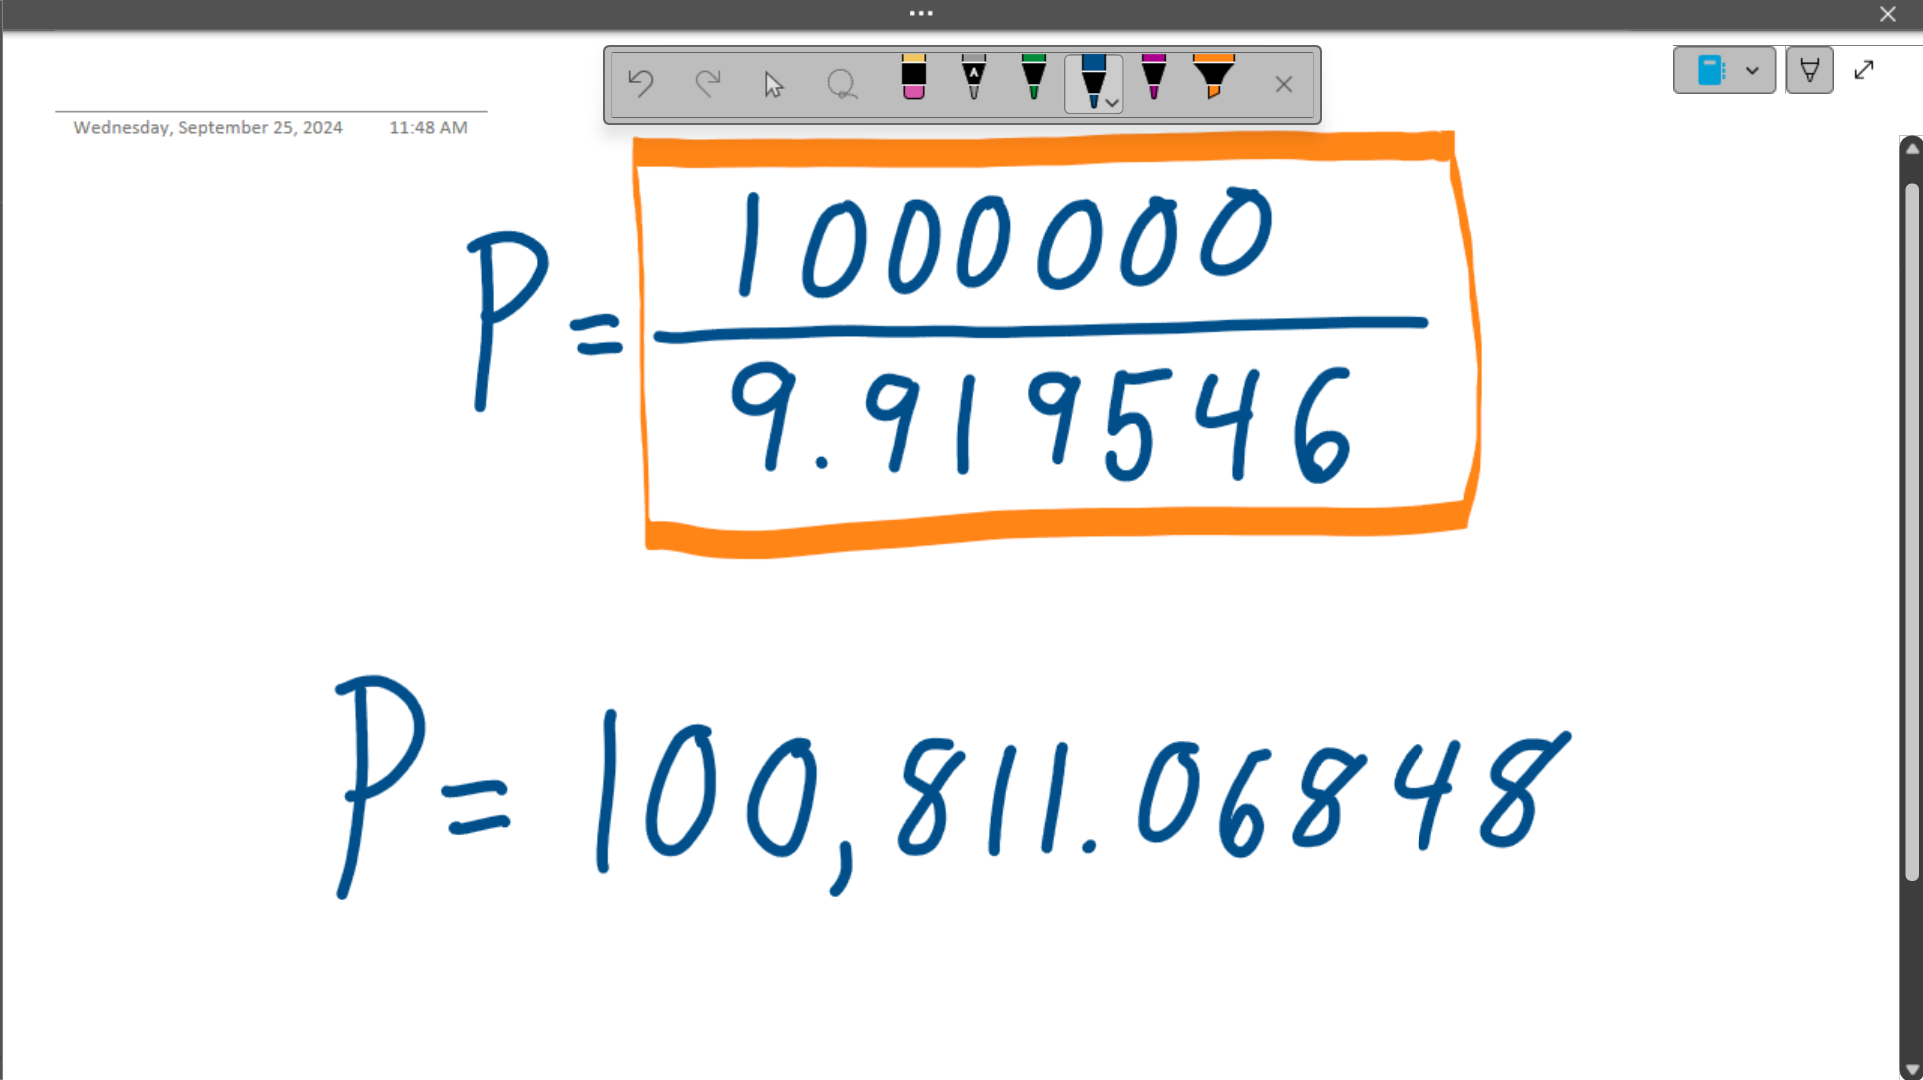 Wednesday, September 25, 2024 11:48 AM
P = 1000000
9.919546
P = 100,811.06848